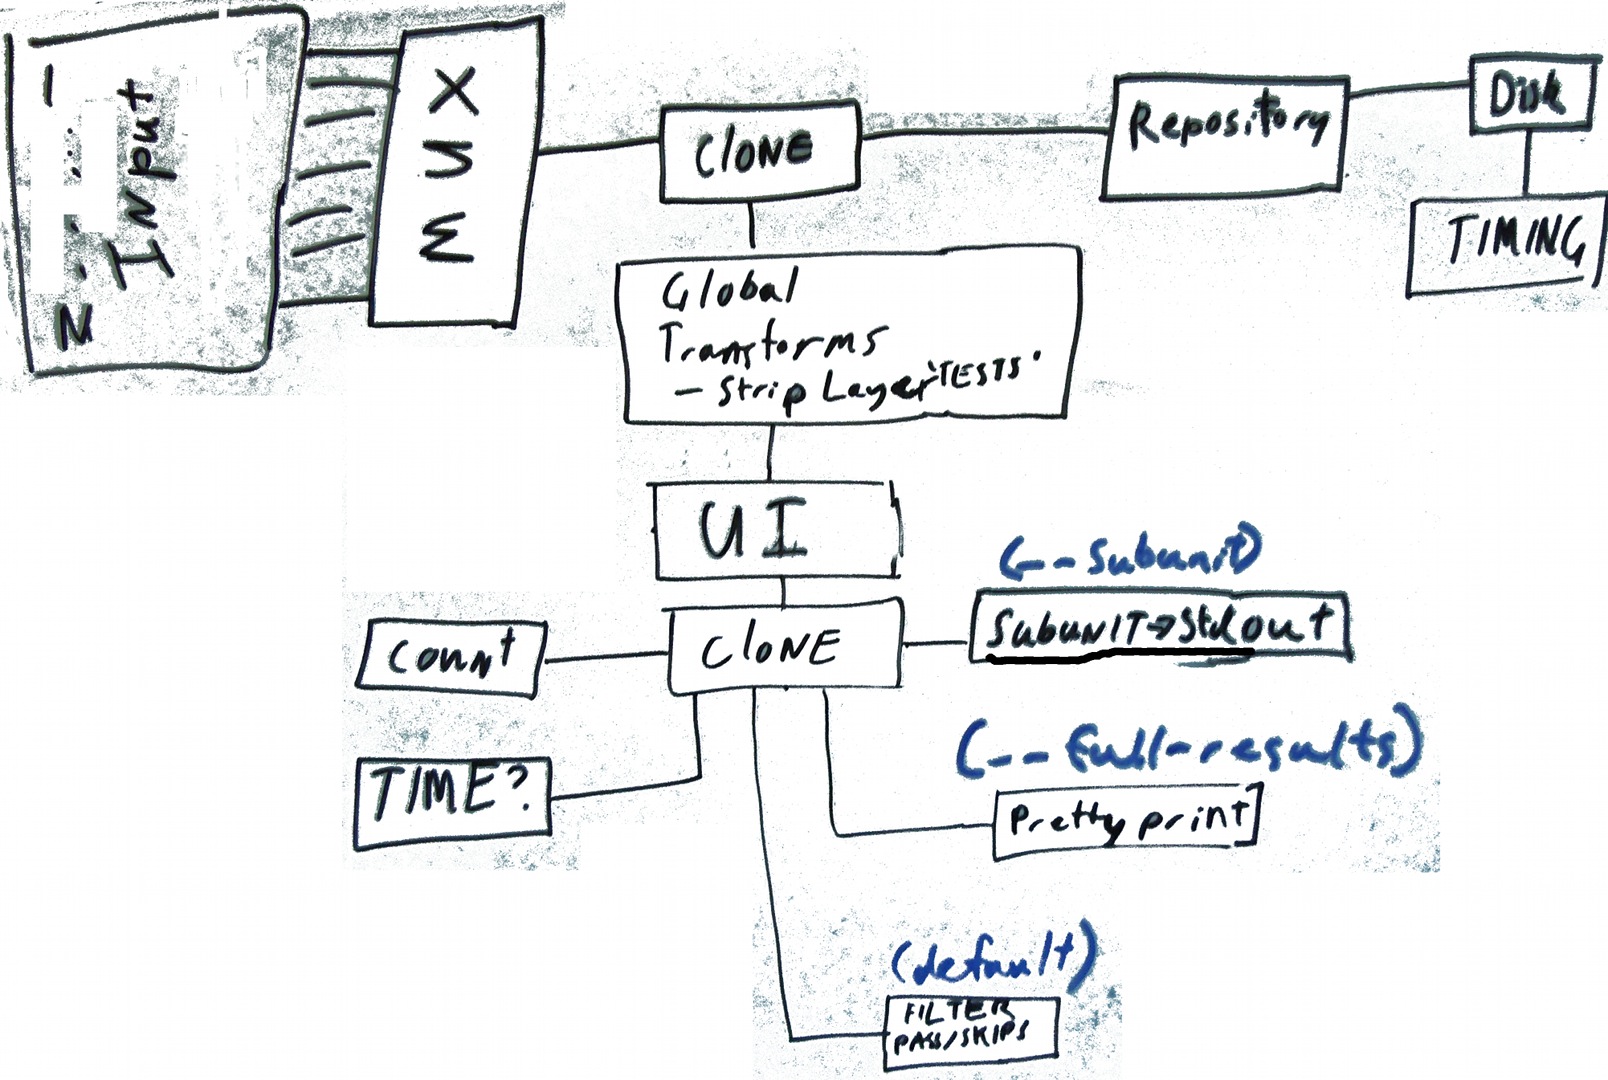 1 ... N
Input
MUX
CLONE
Repository
Disk
TIMING
Global
Transforms
- Strip Layer "TESTS"
UI
(--subunit)
Count
CLONE
SubuNIT→Stdout
(--full-results)
TIME?
Pretty print
(default)
FILTER
PASS/SKIPS